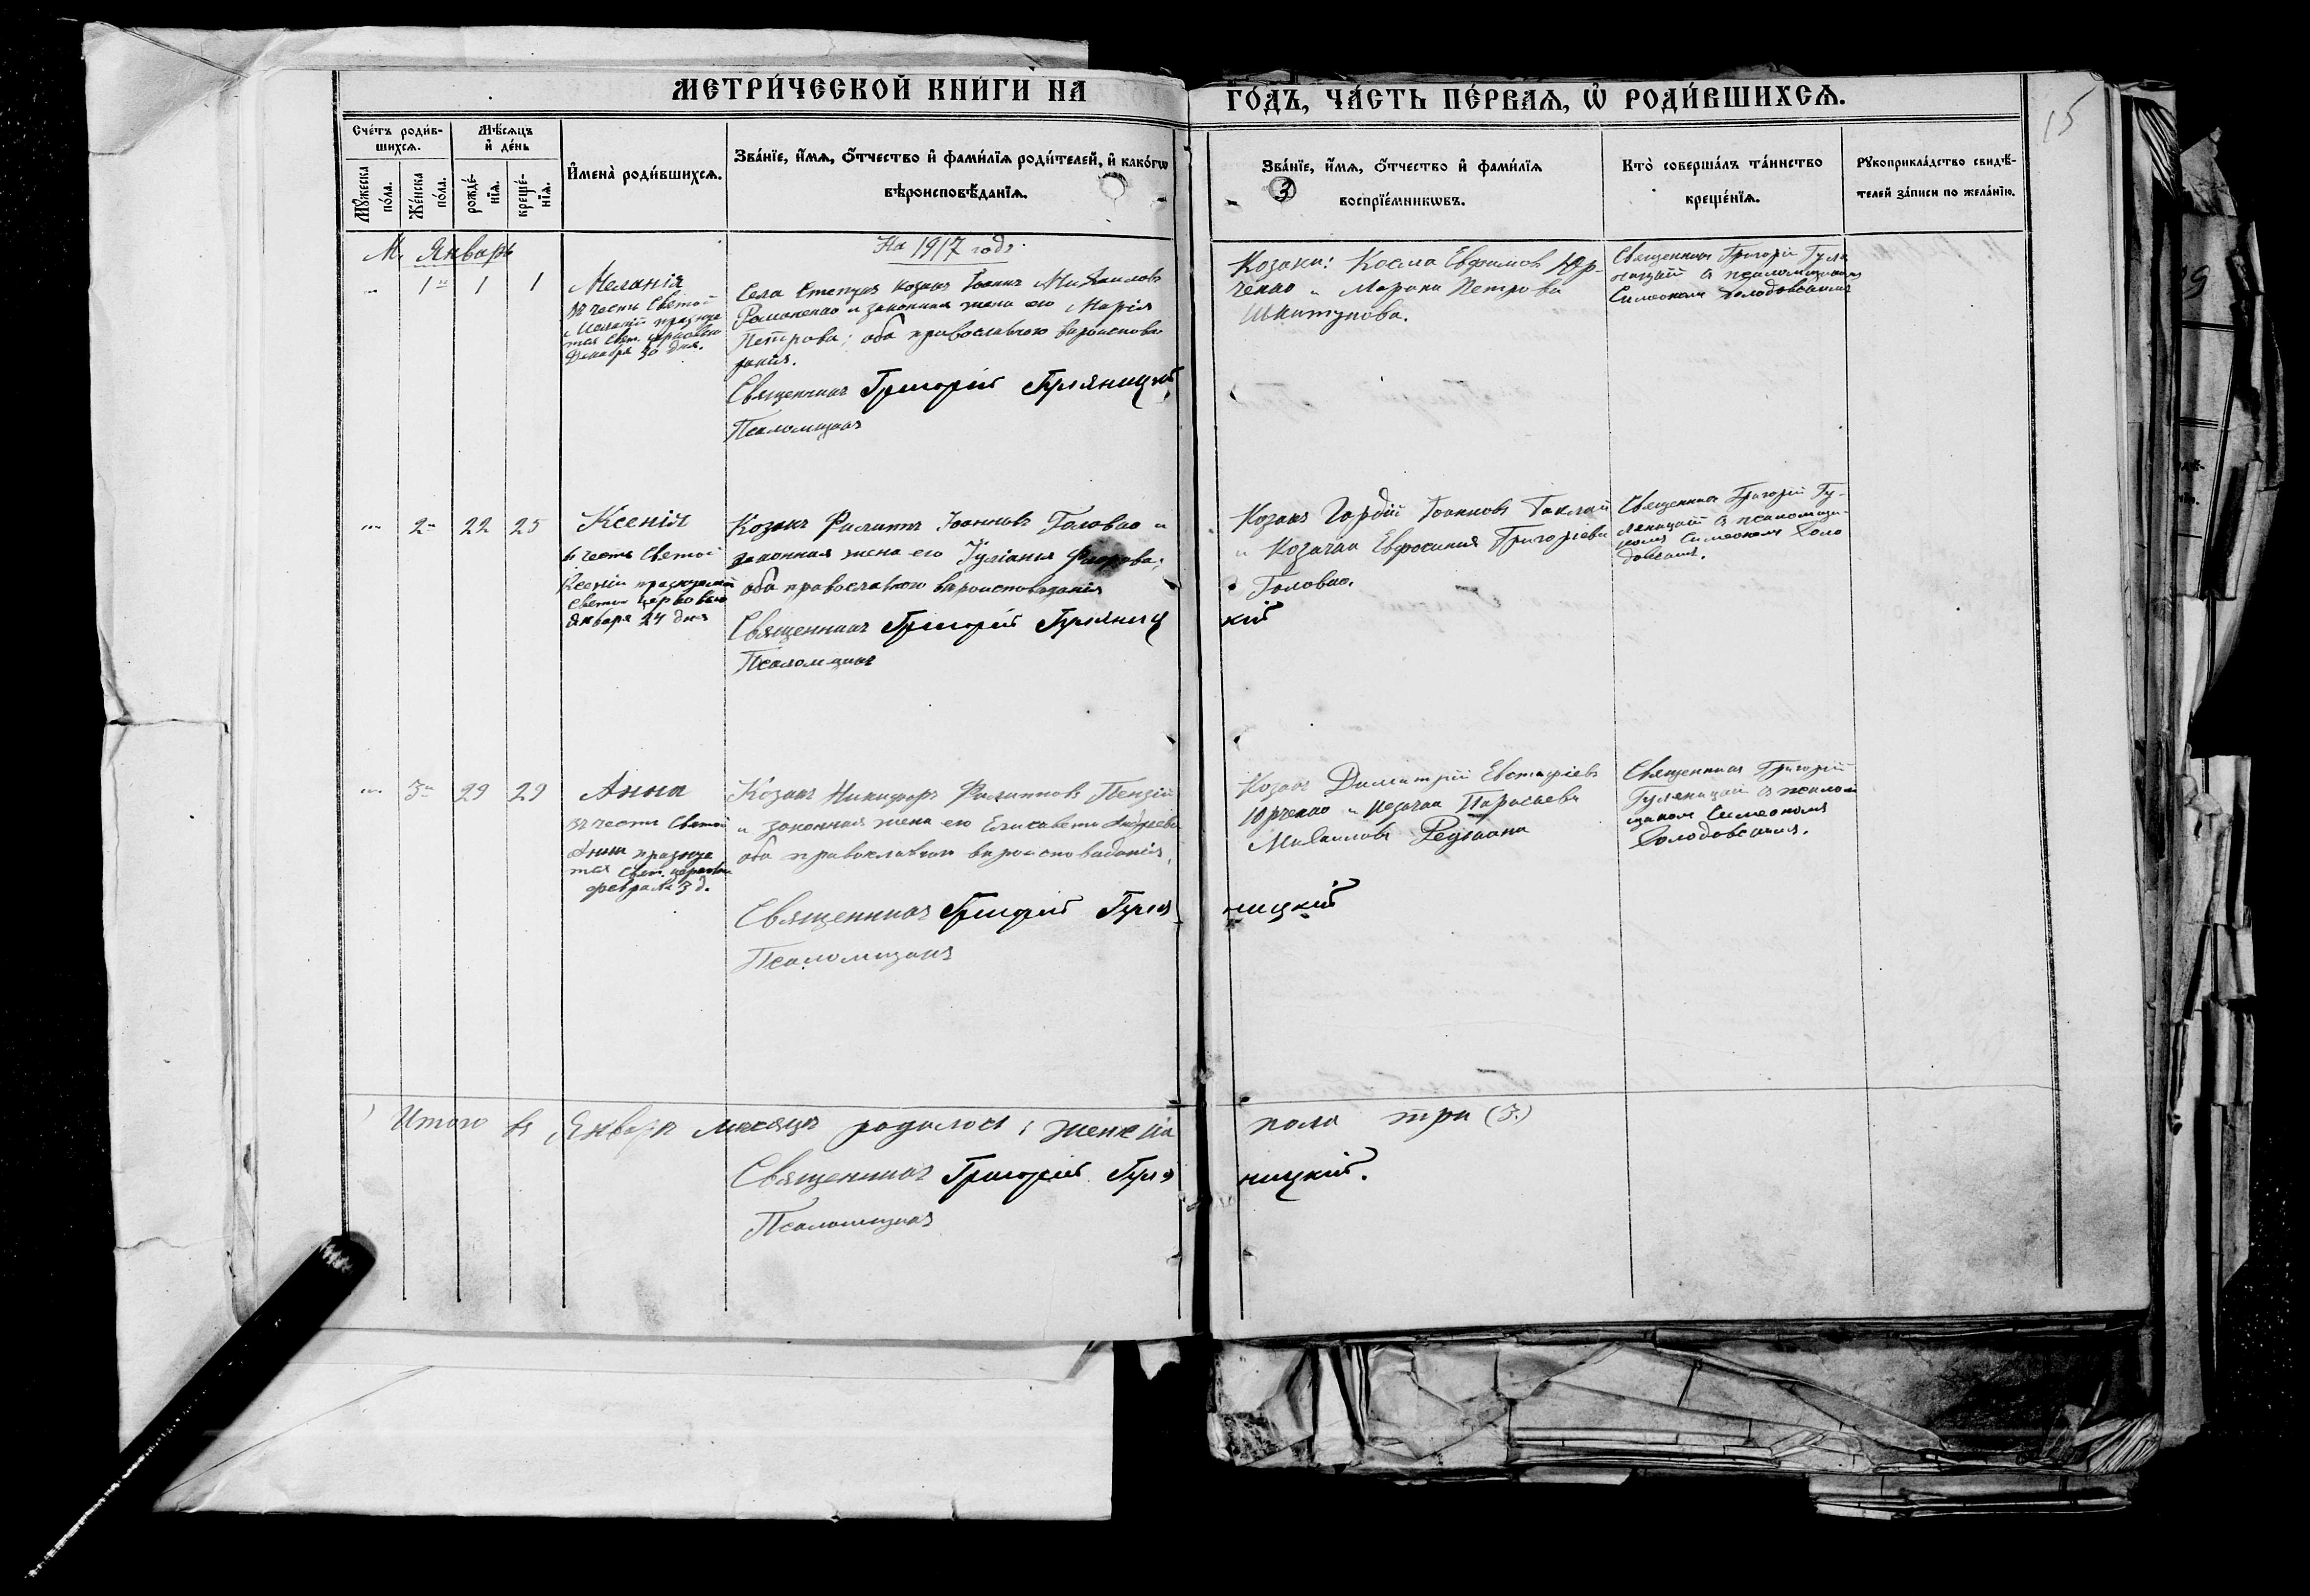 МЕТРИ́ЧЕСКОЙ КНИ́ГИ НА
ГО́ДЪ, ЧА́СТЬ ПЕ́РВАѦ, Ѡ҆ РОДИ́ВШИХСѦ.
15
Сче́тъ роди́в-
шихсѧ.
Мꙋ́жеска
по́ла.
Же́нска
по́ла.
Мѣ́сѧцъ
и҆ де́нь
рожде́-
нїѧ.
креще́-
нїѧ.
И҆мена̀ роди́вшихсѧ.
Зва́нїе, и҆́мѧ, ѻ҆́тчество и҆ фами́лїѧ роди́телей, и҆ како́гѡ
вѣроисповѣ́данїѧ.
Зва́нїе, и҆́мѧ, ѻ҆́тчество и҆ фами́лїѧ
3
воспрїе́мникѡвъ.
Кто̀ соверша́лъ та́инство
креще́нїѧ.
Рꙋкоприкла́дство свидѣ́-
телей за́писи по жела́нїю.
М. Январь
На 1917 годъ.
1 1 1
Меланія
въ честь Святой
Меланіи праздну
тся Свят. церковью
Декабря 30 дня.
Села козакъ Іоаннъ Михаиловъ
Романенко и законная жена его Марія
Петрова; оба православнаго вѣроиспове
данія.
Священникъ Григорій Гуляницкій
Псаломщикъ
Козаки: Косма Евфимовъ Юр-
ченко и Марина Петрова
Священникъ Григорій Гуля
ницкій съ псаломщикомъ
Симеономъ Холодовскимъ
2 22 25
Ксенія
въ честь Святой
Ксеніи празднуемой
Святою Церковью
Января 24 дня
Козакъ Филиппъ Іоанновъ Головко и
законная жена его Іуліанія
оба православнаго вѣроисповѣданія
Священникъ Григорій Гуляниц
кій
Псаломщикъ
Козакъ Гордій Іоанновъ Таклай
и Козачка Евфросинія Григоріева
Головко.
Священникъ Григорій Гу-
ляницкій съ псаломщи-
комъ Симеономъ Холо
довскимъ.
3 29 29
Анна
въ честь Святой
Анны праздну
тся Свят. церковью
февраля 3 д.
Козакъ Никифоръ Филипповъ Пензій
и законная жена его Елисавета Андреева
оба православнаго вѣроисповѣданія,
Священникъ Григорій Гуля
ницкій
Псаломщикъ
Козакъ Димитрій Евстафіевъ
Юрченко и козачка Параскева
Михаилова
Священникъ Григорій
Гуляницкій съ псалом
щикомъ Симеономъ
Холодовскимъ.
Итого въ Январѣ мѣсяцѣ родилось: женска
пола три (3.)
Священникъ Григорій Гуля
ницкій.
Псаломщикъ